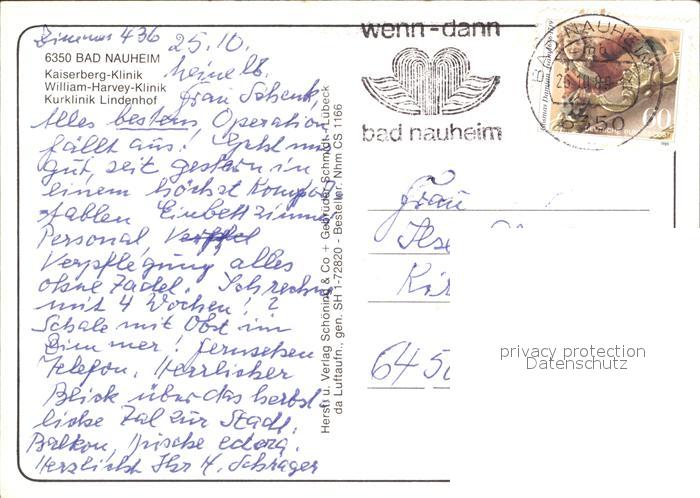 Zimmer 436
25.10.
6350 BAD NAUHEIM
Kaiserberg-Klinik
William-Harvey-Klinik
Kurklinik Lindenhof
Meine lb.
Frau Schenk,
Alles bestens Operation
fällt aus! Geht mir
gut, seit gestern in
einem höchst Komfor
tablen Einbettzimmer
Personal,
Verpflegung alles
ohne Tadel. Ich rechne
mit 4 Wochen! ?
Schale mit Obst im
Zimmer! Fernsehen
Telefon. Herrlicher
Blick über das herbst
liche Tal zur Stadt.
Balkon, Dusche
Herzlichst Ihr H. Schrager
Herst. u. Verlag Schöning & Co + Gebrüder Schmidt - Lübeck
da Luftaufn., gen. SH 1-72820 - Bestellnr. Nhm CS 1166
wenn-dann
bad nauheim
BAD NAUHEIM
6350
60
Frau
Ilse
645
privacy protection
Datenschutz